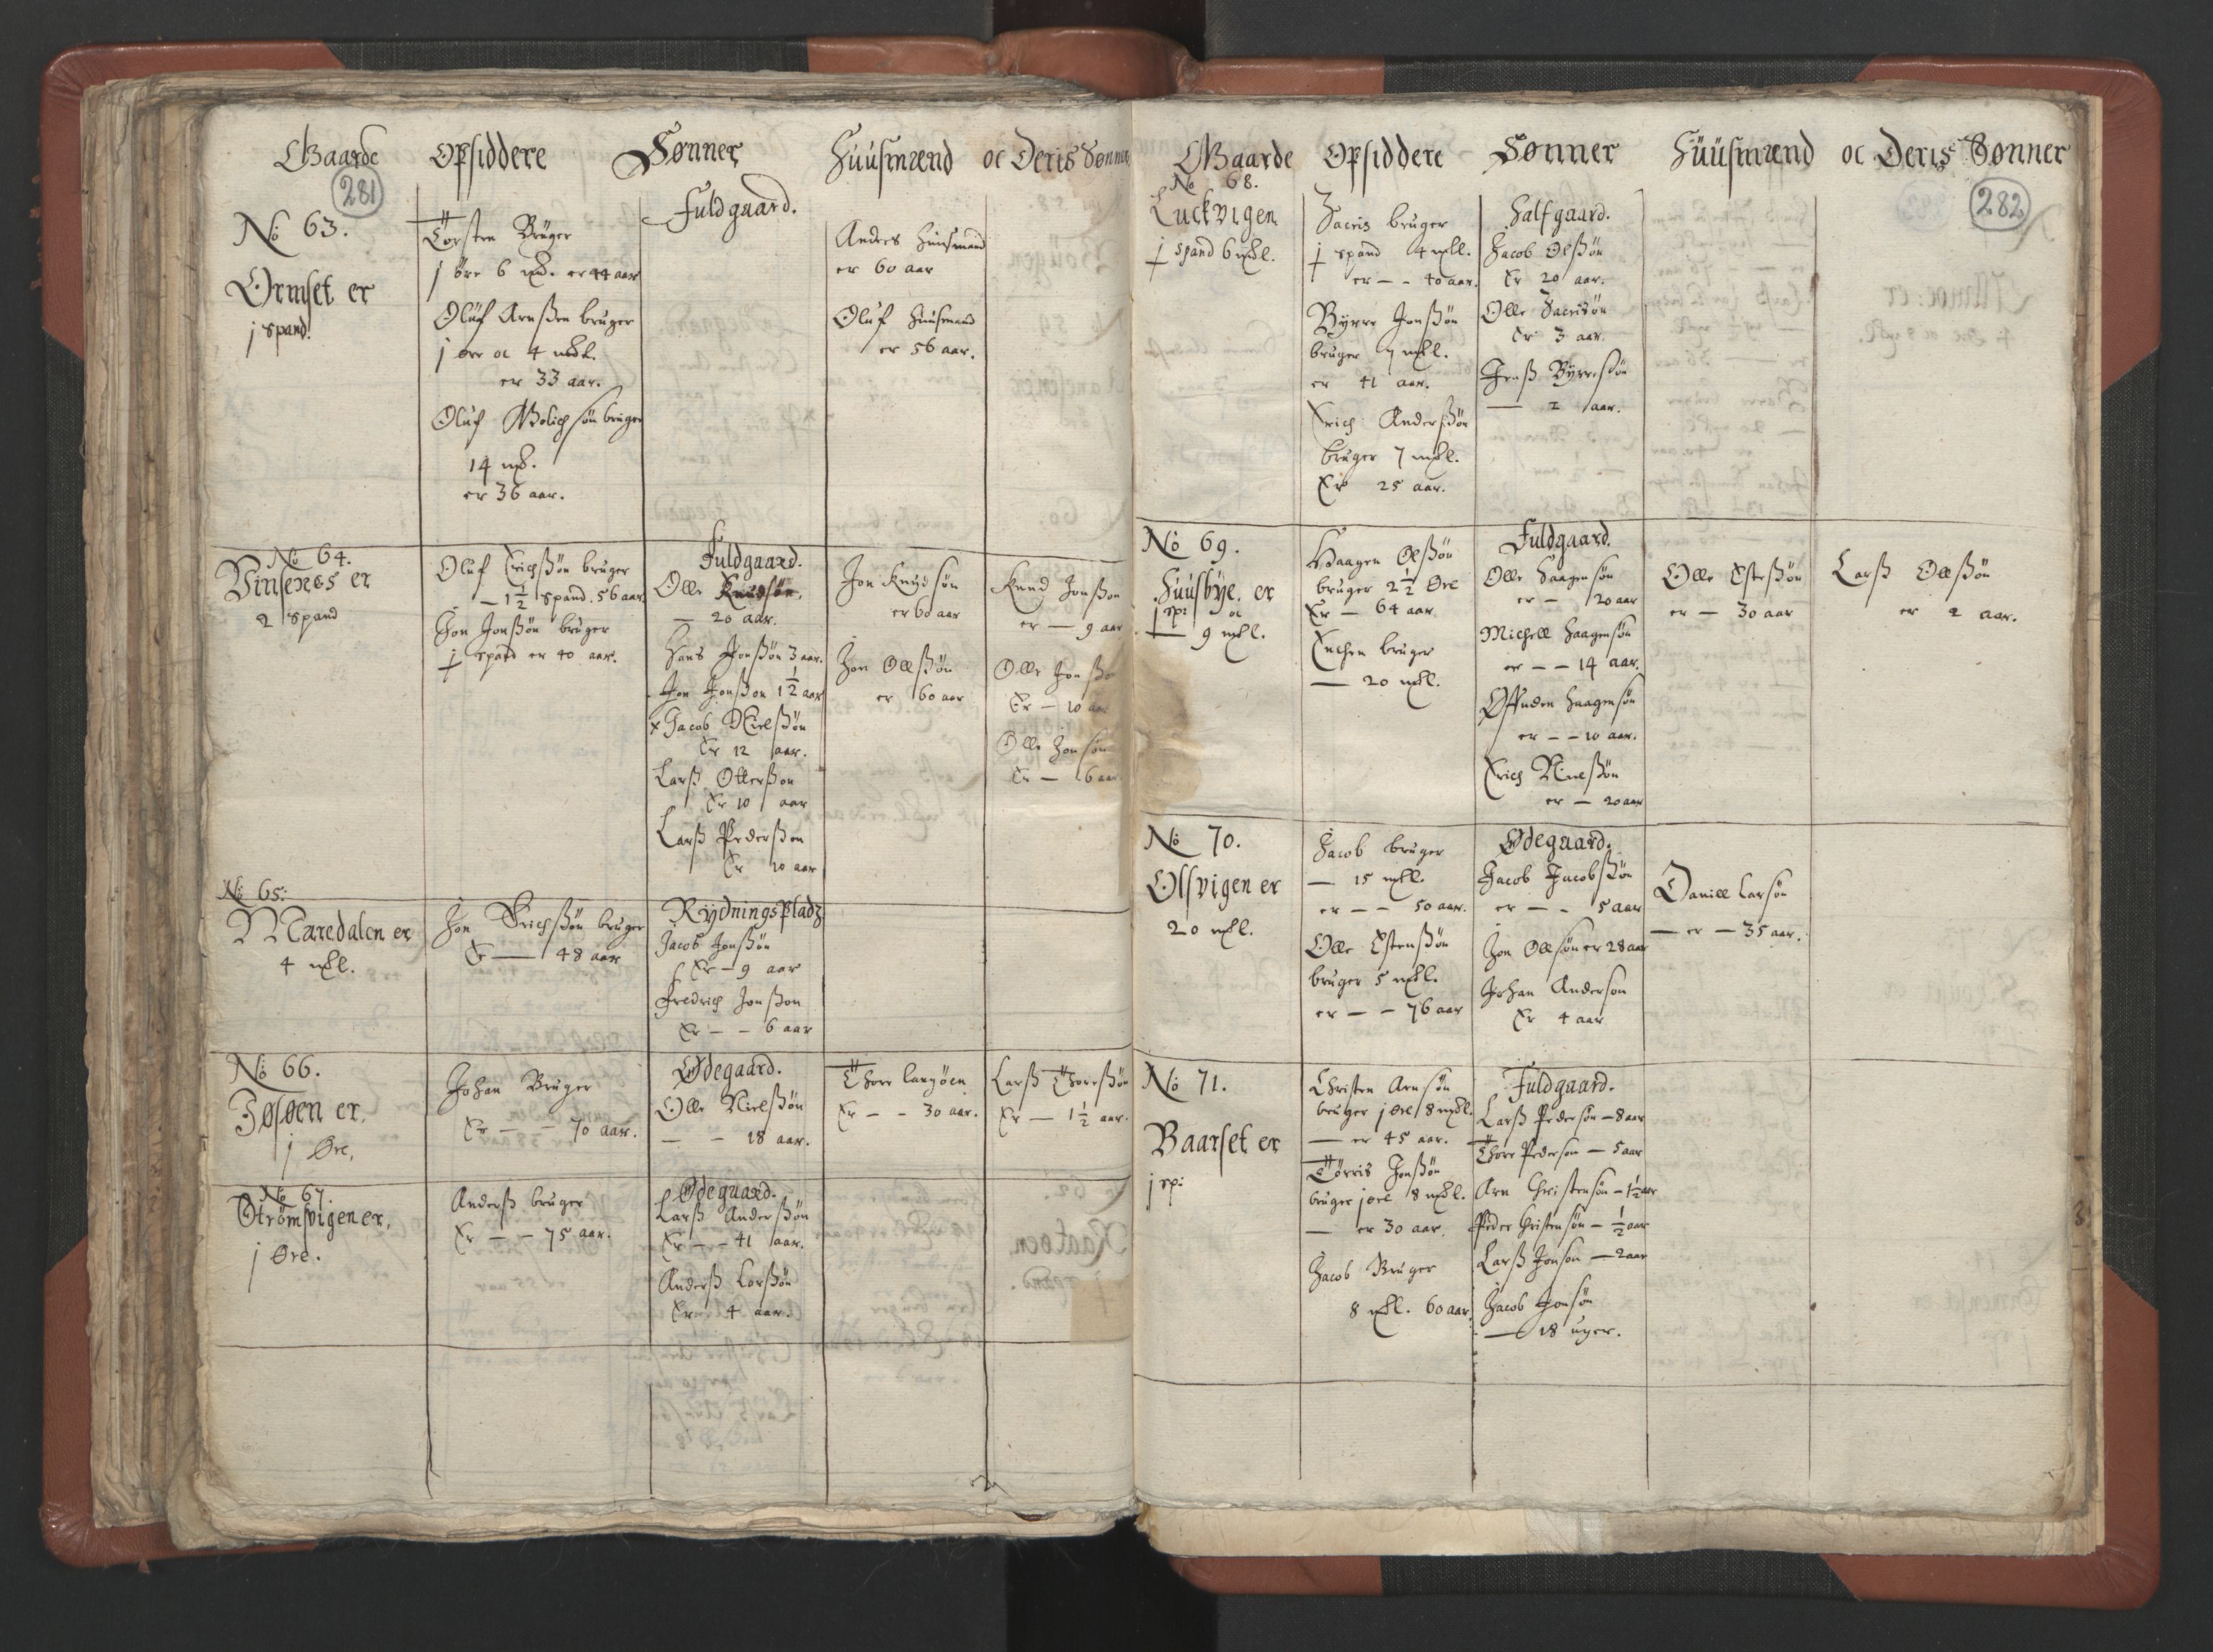 Gaarde Opsiddere Sønner Huusmænd oc Deris Sønner
281
No 63.
Ormset er
j spand.
Torsten Bruger
j øre 6 mk. er 44 aar
Oluf Arnßen bruger
j øre oc 4 mkl.
er 33 aar.
Oluf bruger
14 mk.
er 36 aar.
Fuldgaard.
Anders huusmand
er 60 aar
Oluf huusmand
er 56 aar.
No 64.
Vinsenes er
2 spand
Oluf Erichßøn bruger
— 1½ spand. 56 aar
Jon Jonßøn bruger
j spand er 40 aar.
Fuldgaard.
Olle Knudsøn.
— 20 aar.
Hans Jonßøn 3 aar.
Jon Jonßon 1½ aar
x Jacob Nielßøn
Er 12 aar.
Larß Ollerßon
Er 10 aar
Larß Pederßon
Er 10 aar
Jon Knudsøn
er 60 aar
Jon Olßøn
er 60 aar
Knud Jonßon
er — 9 aar
Olle Jonßo
Er — 10 aar
Olle Jonsøn
Er — 6 aar
No 65:
Maredalen er
4 mkl.
Jon Erichßøn bruger
Er — 48 aar
RydningsPladz
Jacob Jonßøn
Er — 9 aar
Fredrich Jonßon
Er — — 6 aar
No 66.
Jøsøen er
j Øre.
Johan Bruger
Er — — 70 aar.
Ødegaard.
Olle Nielßøn
— — 18 aar.
Thore Langøen
Er — — 30 aar.
Larß Thoreßøn
Er — 1½ aar.
No 67.
Strømsvigen er,
j Øre.
Anderß bruger
Er — — 75 aar.
Ødegaard.
Larß Anderßøn
Er — — 41 aar.
Anderß Larßøn
Er 4 aar.
Gaarde Opsiddere Sønner Huusmænd oc Deris Sønner
282
No 68.
Luckvigen
j spand 6 mkl.
Sacris bruger
j spand 4 mkl.
er — — 40 aar.
Byrre Jonßøn
bruger 7 mkl.
er 41 aar.
Erich Anderßøn
bruger 7 mkl.
Er 25 aar.
Halfgaard.
Jacob Olßøn
Er 20 aar.
Olle Sacrisøn
Er 3 aar.
Jenß Byrresøn
— 2 aar.
No 69.
Huusbye er
j sp: oc
— 9 mkl.
Haagen Olßøn
bruger 2½ Øre
Er — 64 aar
Enchen bruger
— 20 mkl.
Fuldgaard.
Olle Haagensøn
er — 20 aar
Michell Haagensøn
er — — 14 aar.
Haagensøn
er — — 10 aar.
Erich
er — 20 aar
Olle Esteßøn
er — 30 aar
Larß Olßøn
er 2 aar.
No 70.
Olsvigen er
20 mkl.
Jacob bruger
— 15 mkl.
er — — 50 aar.
Olle Estenßøn
bruger 5 mkl.
er — — 76 aar
Ødegaard.
Jacob Jacobßøn
er — — 5 aar
Jon Olsøn er 28 aar
Johan Anderson
Er 4 aar
Daniell Larsøn
— er — 35 aar.
No 71.
Baarset er
j sp:
Christen Arnsøn
bruger j øre 8 mkl.
— er 45 aar.
Tørris Jonßøn
bruger j øre 8 mkl.
— er 30 aar.
Jacob Bruger
8 mkl. 60 aar
Fuldgaard.
Larß Pedersøn — 8 aar
Thore Pederson — 5 aar
Arn Christensøn — 1½ aar
Peder Christensøn — ½ aar
Larß Jonson — 2 aar
Jacob Jonsøn
— 18 uger.